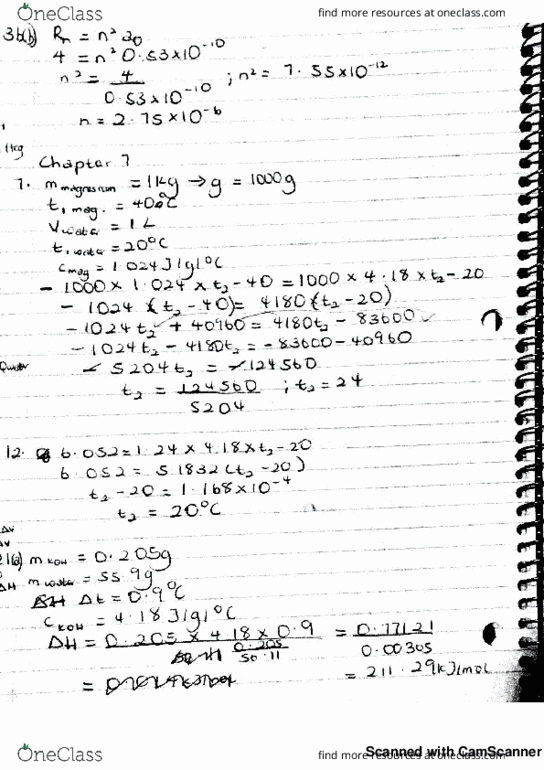 OneClass
find more resources at oneclass.com
3b(b) Rn = n² a0
4 = n² 0.53x10⁻¹⁰
n² = 4 / 0.53x10⁻¹⁰ ; n² = 7.55x10⁻¹²
n = 2.75x10⁻⁶
Chapter 7
7. m magnesium = 1kg → g = 1000g
t, mag. = 40°C
V water = 1 L
t, water = 20°C
C mag = 1.024J/g/°C
- 1000 x 1.024 x t₂ - 40 = 1000 x 4.18 x t₂ - 20
- 1024 (t₂ - 40) = 4180(t₂ - 20)
- 1024 t₂ + 40960 = 4180t₂ - 83600
- 1024t₂ - 4180t₂ = - 83600 - 40960
- 5204t₂ = -124560
t₂ = 124560 / 5204 ; t₂ = 24
12. 6.052 = 1.24 x 4.18 x t₂ - 20
6.052 = 5.1832 (t₂ - 20)
t₂ - 20 = 1.168x10⁻⁴
t₂ = 20°C
21(a) m KOH = 0.205g
m water = 55.9g
Δt = 0.9°C
C KOH = 4.18J/g/°C
ΔH = 0.205 x 4.18 x 0.9 / 0.205 / 56.11 = 0.77121 / 0.00365
= 211.29kJ/mol
Scanned with CamScanner
OneClass
find more resources at oneclass.com